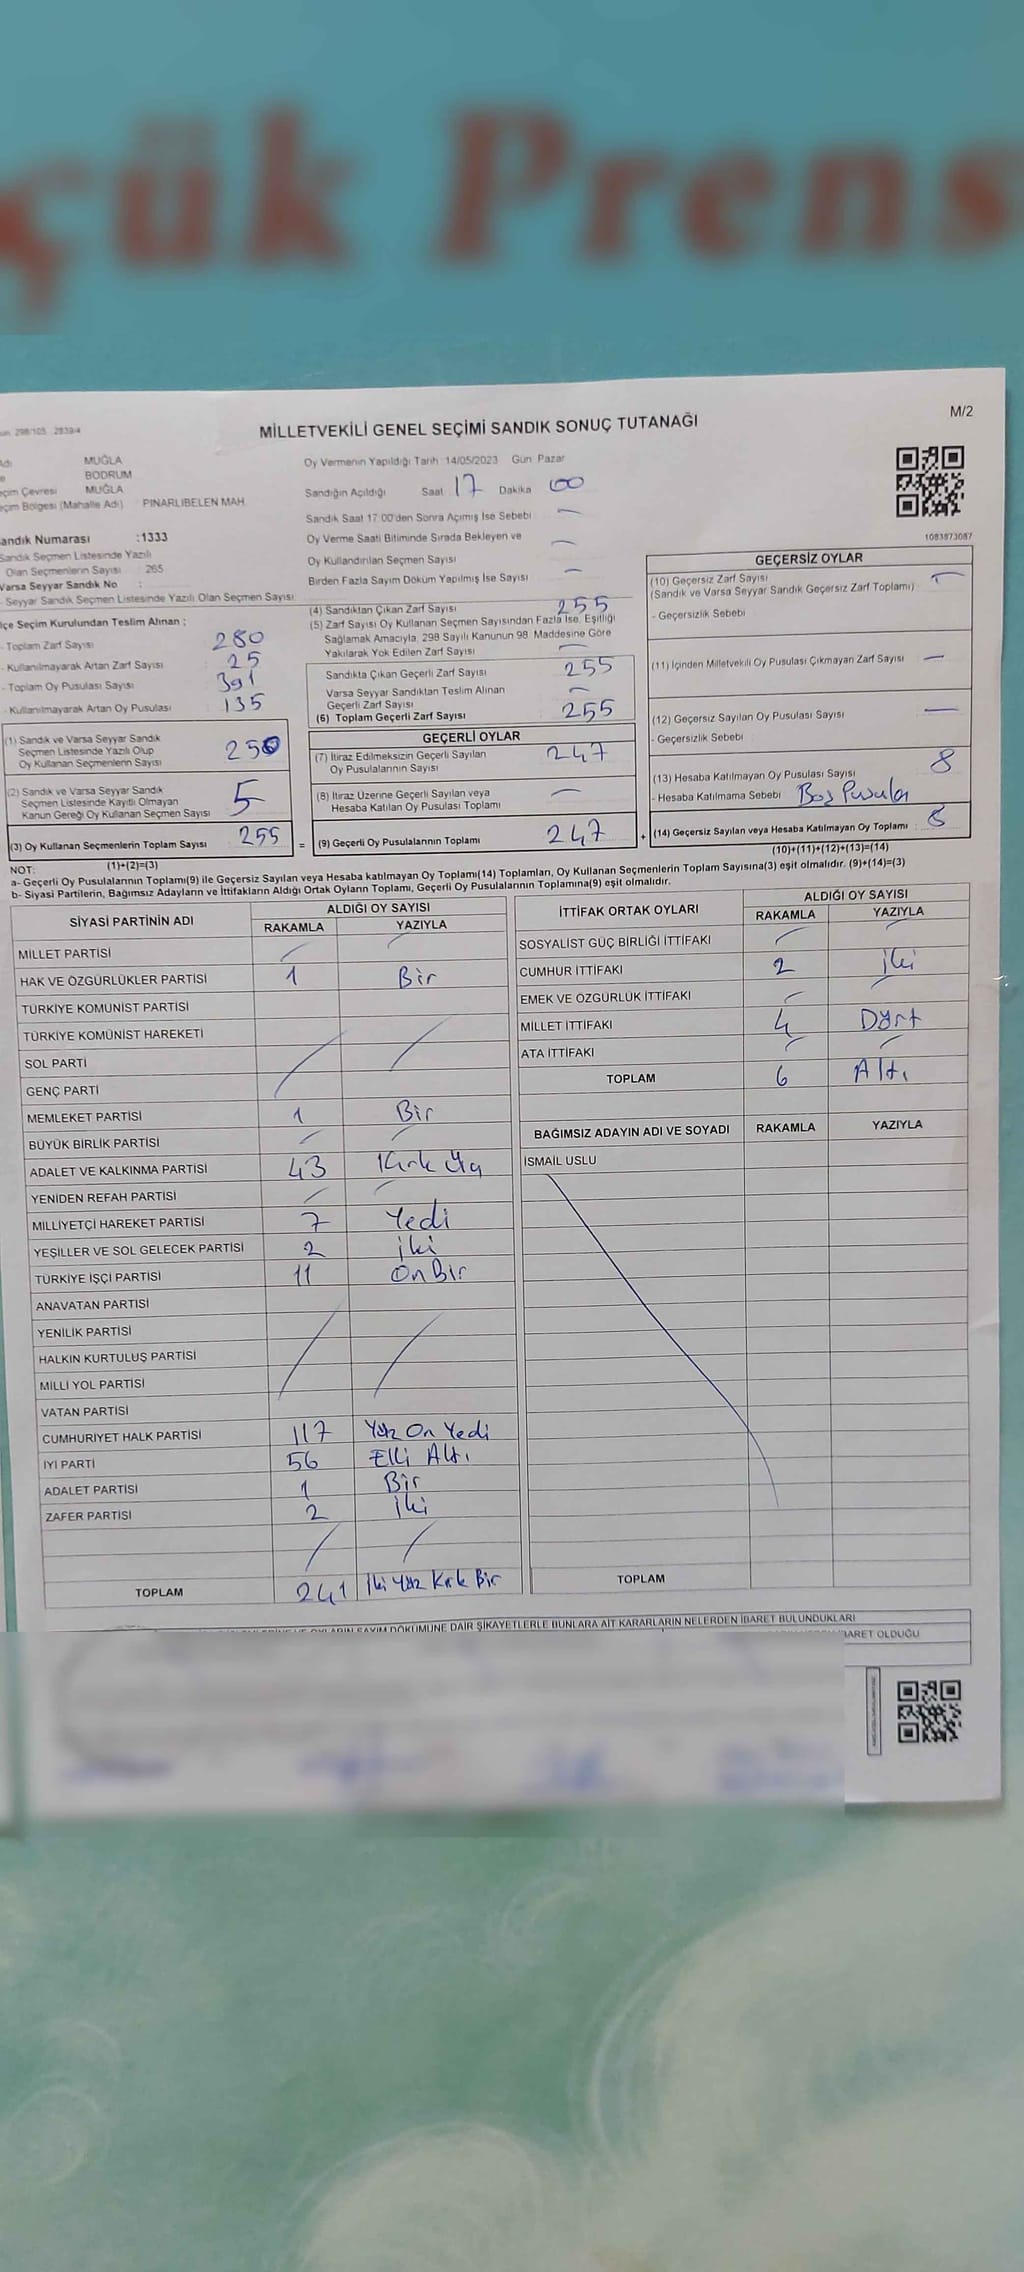 çük Prens
M/2
MİLLETVEKİLİ GENEL SEÇİMİ SANDIK SONUÇ TUTANAĞI
MUĞLA
BODRUM
eçim Çevresi MUĞLA
eçim Bölgesi (Mahalle Adı) PINARLIBELEN MAH.
andık Numarası :1333
Sandık Seçmen Listesinde Yazılı
Olan Seçmenlerin Sayısı : 265
Varsa Seyyar Sandık No :
- Seyyar Sandık Seçmen Listesinde Yazılı Olan Seçmen Sayısı
lçe Seçim Kurulundan Teslim Alınan ;
- Toplam Zarf Sayısı : 280
- Kullanılmayarak Artan Zarf Sayısı : 25
- Toplam Oy Pusulası Sayısı : 391
- Kullanılmayarak Artan Oy Pusulası : 135
(1) Sandık ve Varsa Seyyar Sandık
Seçmen Listesinde Yazılı Olup
Oy Kullanan Seçmenlerin Sayısı 250
(2) Sandık ve Varsa Seyyar Sandık
Seçmen Listesinde Kayıtlı Olmayan
Kanun Gereği Oy Kullanan Seçmen Sayısı 5
(3) Oy Kullanan Seçmenlerin Toplam Sayısı 255 =
(1)+(2)=(3)
Oy Vermenin Yapıldığı Tarih 14/05/2023 Gün Pazar
Sandığın Açıldığı Saat 17 Dakika 00
Sandık Saat 17:00'den Sonra Açımış İse Sebebi —
Oy Verme Saati Bitiminde Sırada Bekleyen ve
Oy Kullandırılan Seçmen Sayısı —
Birden Fazla Sayım Döküm Yapılmış İse Sayısı —
(4) Sandıktan Çıkan Zarf Sayısı 255
(5) Zarf Sayısı Oy Kullanan Seçmen Sayısından Fazla İse, Eşitliği
Sağlamak Amacıyla, 298 Sayılı Kanunun 98. Maddesine Göre
Yakılarak Yok Edilen Zarf Sayısı —
Sandıkta Çıkan Geçerli Zarf Sayısı 255
Varsa Seyyar Sandıktan Teslim Alınan
Geçerli Zarf Sayısı —
(6) Toplam Geçerli Zarf Sayısı 255
GEÇERLİ OYLAR
(7) İtiraz Edilmeksizin Geçerli Sayılan
Oy Pusulalarının Sayısı 247
(8) İtiraz Üzerine Geçerli Sayılan veya
Hesaba Katılan Oy Pusulası Toplamı —
(9) Geçerli Oy Pusulalarının Toplamı 247 +
1083873087
GEÇERSİZ OYLAR
(10) Geçersiz Zarf Sayısı —
(Sandık ve Varsa Seyyar Sandık Geçersiz Zarf Toplamı)
- Geçersizlik Sebebi
(11) İçinden Milletvekili Oy Pusulası Çıkmayan Zarf Sayısı —
(12) Geçersiz Sayılan Oy Pusulası Sayısı —
- Geçersizlik Sebebi
(13) Hesaba Katılmayan Oy Pusulası Sayısı 8
- Hesaba Katılmama Sebebi Boş Pusula
(14) Geçersiz Sayılan veya Hesaba Katılmayan Oy Toplamı 8
(10)+(11)+(12)+(13)=(14)
NOT:
a- Geçerli Oy Pusulalarının Toplamı(9) ile Geçersiz Sayılan veya Hesaba katılmayan Oy Toplamı(14) Toplamları, Oy Kullanan Seçmenlerin Toplam Sayısına(3) eşit olmalıdır. (9)+(14)=(3)
b- Siyasi Partilerin, Bağımsız Adayların ve İttifakların Aldığı Ortak Oyların Toplamı, Geçerli Oy Pusulalarının Toplamına(9) eşit olmalıdır.
SİYASİ PARTİNİN ADI ALDIĞI OY SAYISI
RAKAMLA YAZIYLA
MİLLET PARTİSİ
HAK VE ÖZGÜRLÜKLER PARTİSİ 1 Bir
TÜRKİYE KOMÜNİST PARTİSİ
TÜRKİYE KOMÜNİST HAREKETİ
SOL PARTİ
GENÇ PARTİ
MEMLEKET PARTİSİ 1 Bir
BÜYÜK BİRLİK PARTİSİ
ADALET VE KALKINMA PARTİSİ 43 Kırk Üç
YENİDEN REFAH PARTİSİ
MİLLİYETÇİ HAREKET PARTİSİ 7 Yedi
YEŞİLLER VE SOL GELECEK PARTİSİ 2 iki
TÜRKİYE İŞÇİ PARTİSİ 11 On Bir
ANAVATAN PARTİSİ
YENİLİK PARTİSİ
HALKIN KURTULUŞ PARTİSİ
MİLLİ YOL PARTİSİ
VATAN PARTİSİ
CUMHURİYET HALK PARTİSİ 117 Yüz On Yedi
İYİ PARTİ 56 Elli Altı
ADALET PARTİSİ 1 Bir
ZAFER PARTİSİ 2 iki
TOPLAM 241 İki Yüz Kırk Bir
İTTİFAK ORTAK OYLARI ALDIĞI OY SAYISI
RAKAMLA YAZIYLA
SOSYALİST GÜÇ BİRLİĞİ İTTİFAKI
CUMHUR İTTİFAKI 2 iki
EMEK VE ÖZGÜRLÜK İTTİFAKI
MİLLET İTTİFAKI 4 Dört
ATA İTTİFAKI
TOPLAM 6 Altı
BAĞIMSIZ ADAYIN ADI VE SOYADI RAKAMLA YAZIYLA
İSMAİL USLU
TOPLAM
SAYIM DÖKÜMÜNE DAİR ŞİKAYETLERLE BUNLARA AİT KARARLARIN NELERDEN İBARET BULUNDUKLARI
BARET OLDUĞU